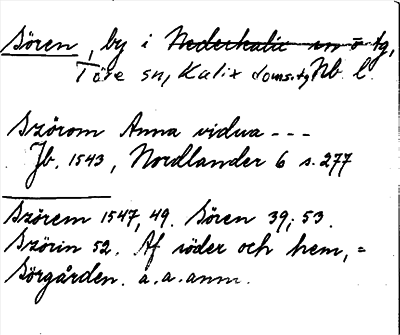 Sören, by i Nederkalix sn o tg,
Töre sn, Kalix doms.tg Nb. l.
Szörom Anna vidua - - -
Jb. 1543, Nordlander 6 s. 277
Szörem 1547, 49. Sören 39; 53.
Szörin 52. Af söder och hem, =
Sörgården. a. a. anm.